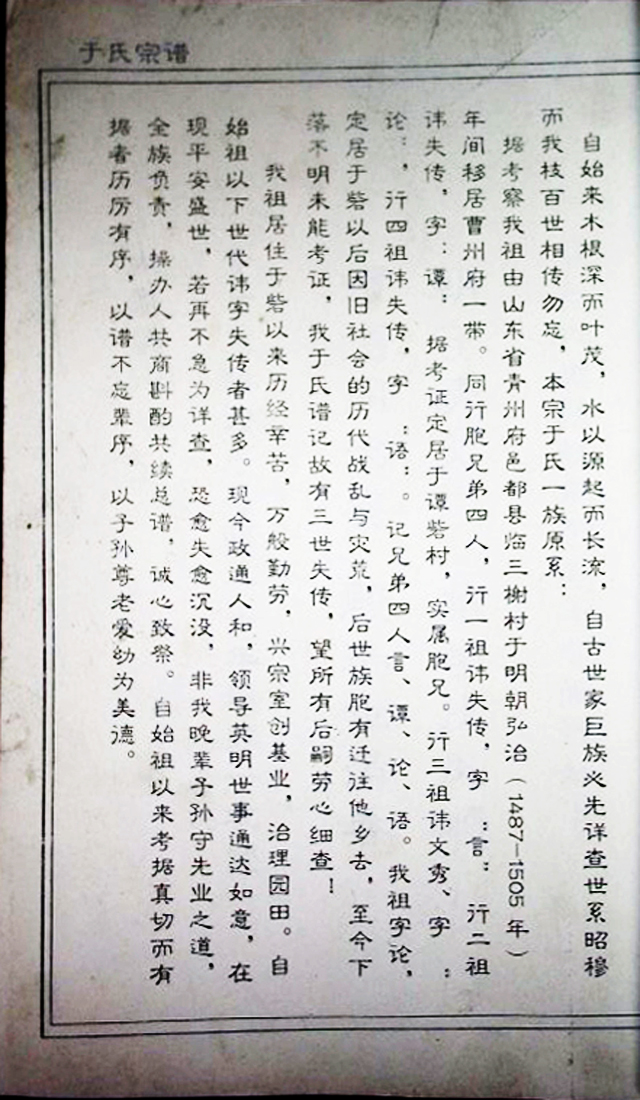 于氏宗谱
自始来木根深而叶茂，水以源起而长流，自古世家巨族必先详查世系昭穆
而我枝百世相传勿忘，本宗于氏一族原系：
据考察我祖由山东省青州府邑都县临三榭村于明朝弘治（1487—1505年）
年间移居曹州府一带。同行胞兄弟四人，行一祖讳失传，字：言；行二祖
讳失传，字：谭： 据考证定居于谭砦村，实属胞兄。行三祖讳文秀、字：
论：，行四祖讳失传，字：语：。记兄弟四人言、谭、论、语。我祖字论，
定居于砦以后因旧社会的历代战乱与灾荒，后世族胞有迁往他乡去，至今下
落不明未能考证，我于氏谱记故有三世失传，望所有后嗣劳心细查！
我祖居住于砦以来历经辛苦，万般勤劳，兴宗室创基业，治理园田。自
始祖以下世代讳字失传者甚多。现今政通人和，领导英明世事通达如意，在
现平安盛世，若再不急为详查，恐愈失愈沉没，非我晚辈子孙守先业之道，
全族负责，操办人共商斟酌共续总谱，诚心致祭。自始祖以来考据真切而有
据者历历有序，以谱不忘辈序，以子孙尊老爱幼为美德。